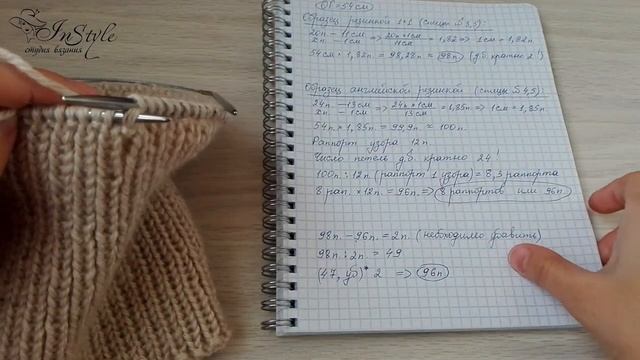 InStyle
студия вязания
ОГ = 54 см
Образец резинкой 1×1 (спицы №3,5):
20п - 11см
хп - 1см ⇒ 20п×1см / 11см = 1,82 ⇒ 1см = 1,82п.
54см × 1,82п. = 98,28п = 98п (д.б. кратно 2!)
Образец английской резинкой (спицы №4,5):
24п. - 13см
хп. - 1см ⇒ 24п×1см / 13см = 1,85п ⇒ 1см = 1,85п.
54п. × 1,85п. = 99,9п. = 100п.
Раппорт узора 12п.
Число петель д.б. кратно 24!
100п. : 12п. (раппорт 1 узора) = 8,3 раппорта
8 рап. × 12п. = 96п. ⇒ 8 раппортов или 96п.
98п. - 96п. = 2п. (необходимо убавить)
98п. : 2п. = 49
(47, уб)* 2 ⇒ 96п